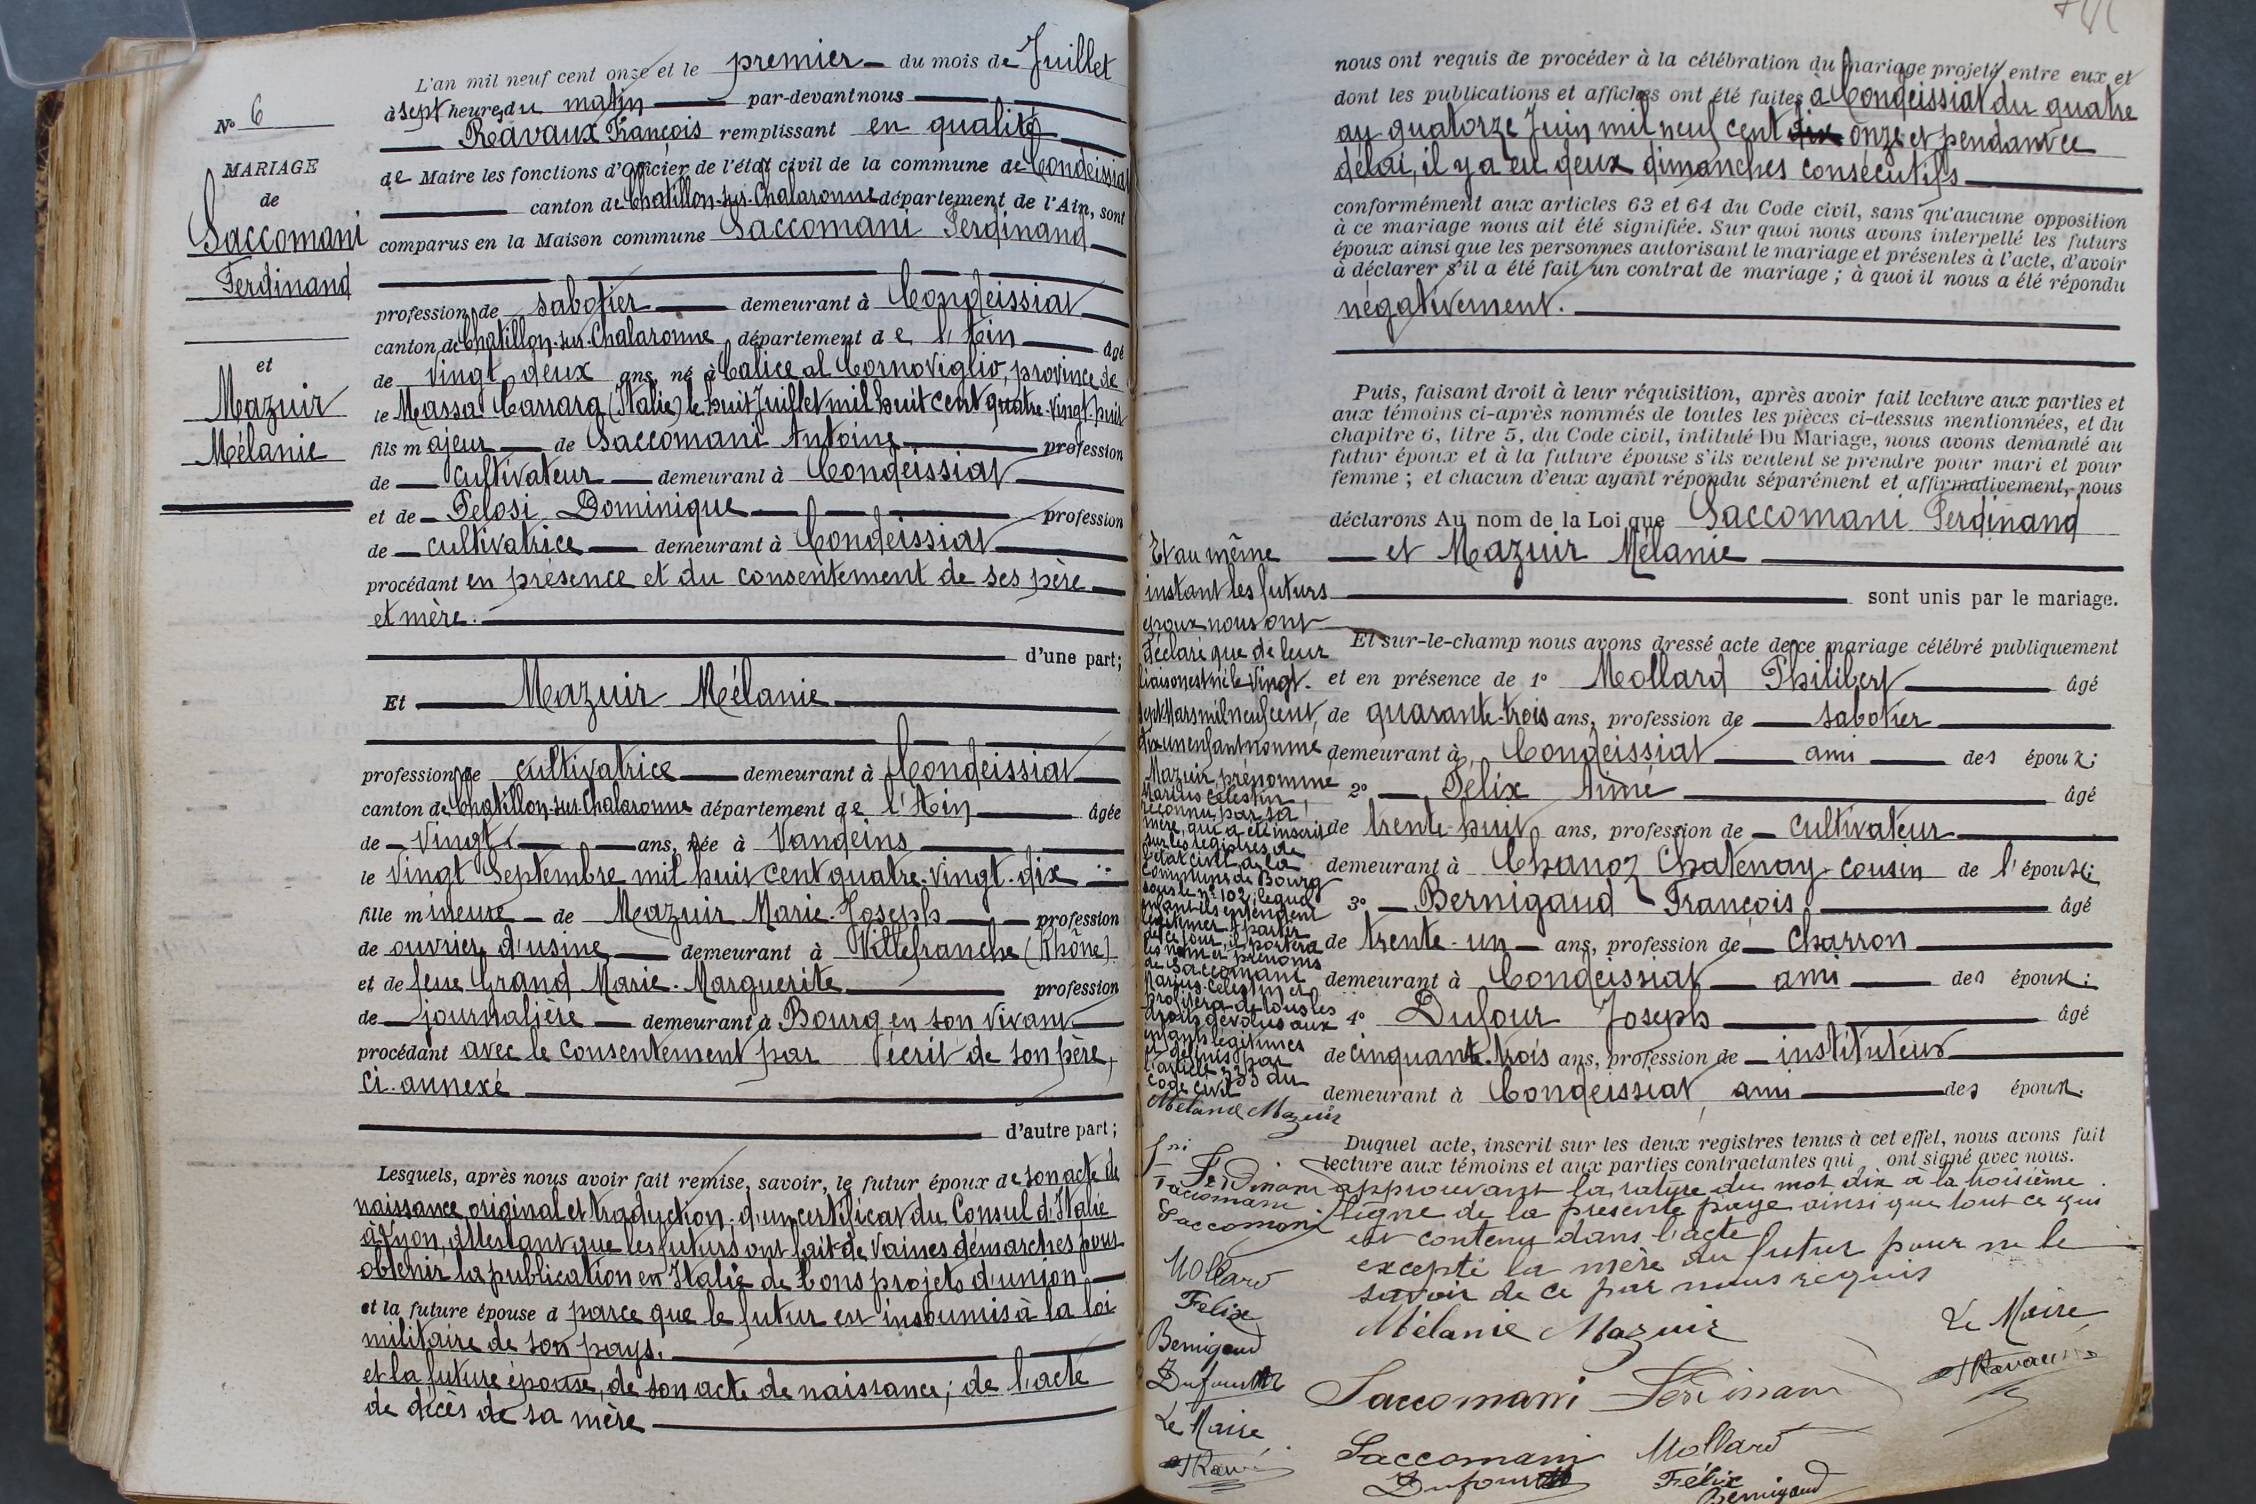 L'an mil neuf cent onze et le premier du mois de Juillet
à sept heures du matin par-devant nous
Ravaux François remplissant en qualité
de Maire les fonctions d'Officier de l'état civil de la commune de Condeissiat
canton de Chatillon-sur-Chalaronne département de l'Ain, sont
comparus en la Maison commune Saccomani Ferdinand
profession de sabotier demeurant à Condeissiat
canton de Chatillon-sur-Chalaronne département de l'Ain âgé
de vingt deux ans, né à Calice al Cornoviglio, province de
le Massa Carrara (Italie) le huit Juillet mil huit cent quatre-vingt-huit
fils majeur de Saccomani Antoine profession
de cultivateur demeurant à Condeissiat
et de Pelosi Dominique profession
de cultivatrice demeurant à Condeissiat
procédant en présence et du consentement de ses père
et mère.
d'une part;
Et Mazuir Mélanie
profession de cultivatrice demeurant à Condeissiat
canton de Chatillon-sur-Chalaronne département de l'Ain âgée
de vingt ans, née à Vandeins
le vingt Septembre mil huit cent quatre-vingt-dix
fille mineure de Mazuir Marie-Joseph profession
de ouvrier d'usine demeurant à Villefranche (Rhône)
et de feue Grand Marie-Marguerite profession
de journalière demeurant à Bourg en son vivant
procédant avec le consentement par écrit de son père,
ci-annexé
d'autre part;
Lesquels, après nous avoir fait remise, savoir, le futur époux de son acte de
naissance original et traduction d'un certificat du Consul d'Italie
à Lyon, attestant que les futurs ont fait de vaines démarches pour
obtenir la publication en Italie de leurs projets d'union
et la future épouse d parce que le futur est insoumis à la loi
militaire de son pays.
et la future épouse, de son acte de naissance; de l'acte
de décès de sa mère
N° 6
MARIAGE
de
Saccomani
Ferdinand
et
Mazuir
Mélanie
nous ont requis de procéder à la célébration du mariage projeté entre eux et
dont les publications et affiches ont été faites à Condeissiat du quatre
au quatorze Juin mil neuf cent dix onze et pendant ce
délai, il y a eu deux dimanches consécutifs
conformément aux articles 63 et 64 du Code civil, sans qu'aucune opposition
à ce mariage nous ait été signifiée. Sur quoi nous avons interpellé les futurs
époux ainsi que les personnes autorisant le mariage et présentes à l'acte, d'avoir
à déclarer s'il a été fait un contrat de mariage ; à quoi il nous a été répondu
négativement.
Puis, faisant droit à leur réquisition, après avoir fait lecture aux parties et
aux témoins ci-après nommés de toutes les pièces ci-dessus mentionnées, et du
chapitre 6, titre 5, du Code civil, intitulé Du Mariage, nous avons demandé au
futur époux et à la future épouse s'ils veulent se prendre pour mari et pour
femme ; et chacun d'eux ayant répondu séparément et affirmativement, nous
déclarons Au nom de la Loi que Saccomani Ferdinand
et Mazuir Mélanie
sont unis par le mariage.
Et sur-le-champ nous avons dressé acte de ce mariage célébré publiquement
et en présence de 1° Mollard Philibert âgé
de quarante-trois ans, profession de sabotier
demeurant à Condeissiat ami des époux;
2° Félix Aimé âgé
de trente-huit ans, profession de cultivateur
demeurant à Chanoz Chatenay cousin de l'épouse;
3° Bernigaud François âgé
de trente-un ans, profession de charron
demeurant à Condeissiat ami des époux;
4° Dufour Joseph âgé
de cinquante-trois ans, profession de instituteur
demeurant à Condeissiat, ami des époux.
Duquel acte, inscrit sur les deux registres tenus à cet effet, nous avons fait
lecture aux témoins et aux parties contractantes qui ont signé avec nous.
approuvant la rature du mot dix à la troisième
ligne de la présente page ainsi que tout ce qui
est contenu dans l'acte
excepté la mère du futur pour ne le
savoir de ce par nous requis
Mélanie Mazuir
Le Maire
Ravaux
Saccomani Ferdinand
Saccomani Mollard
Dufour Félix
Bernigaud
Et au même
instant les futurs
époux nous ont
déclaré que de leur
liaison est né le vingt-
sept Mars mil neuf cent
dix un enfant nommé
Mazuir, prénommé
Marius Célestin,
reconnu par sa
mère, qui a été inscrit
sur les registres de
l'état civil de la
commune de Bourg
sous le n° 102, lequel
enfant ils entendent
légitimer à partir
de ce jour, il portera
les nom et prénoms
de Saccomani
Marius-Célestin et
profitera de tous les
droits dévolus aux
enfants légitimes
et définis par
l'article 333 du
Code civil
Mélanie Mazuir
Ferdinand
Saccomani
Saccomani
Mollard
Félix
Bernigaud
Dufour
Le Maire,